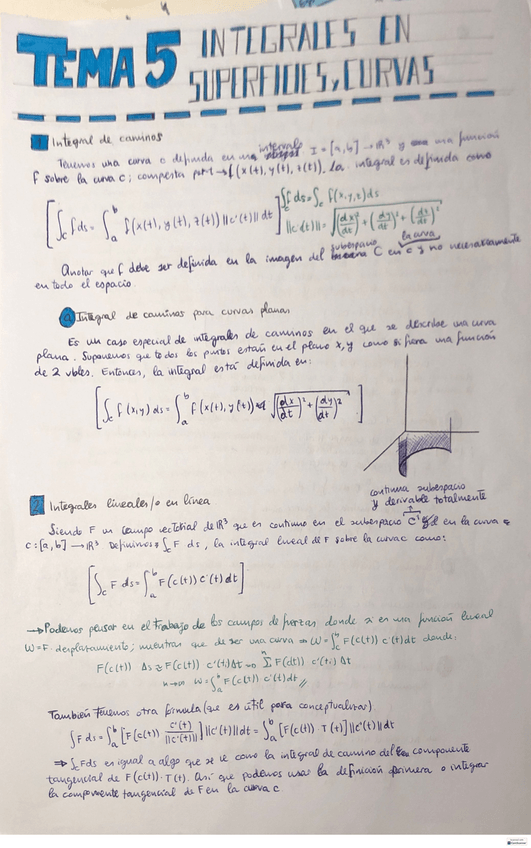 TEMA 5 INTEGRALES EN
SUPERFICIES, CURVAS
1 Integral de caminos
Tenemos una curva o definida en un intervalo I = [a,b] → ℝ³ y una función
f sobre la curva c; compuesta por t → f(x(t), y(t), z(t)). La integral es definida como
[∫_c f ds = ∫_a^b f(x(t), y(t), z(t)) ||c'(t)|| dt]
∫_c f ds = ∫_c f(x,y,z) ds
||c'(t)|| = √((dx/dt)² + (dy/dt)² + (dz/dt)²)
Anotar que f debe ser definida en la imagen del subespacio C en la curva c y no necesariamente
en todo el espacio.
a) Integral de caminos para curvas planas
Es un caso especial de integrales de caminos en el que se describe una curva
plana. Suponemos que todos los puntos están en el plano x,y como si fuera una función
de 2 vbles. Entonces, la integral está definida en:
[∫_c f(x,y) ds = ∫_a^b f(x(t), y(t)) √((dx/dt)² + (dy/dt)²)]
continua subespacio
y derivable totalmente
2 Integrales lineales/o en línea
Siendo F un campo vectorial de ℝ³ que es continuo en el subespacio C¹ en la curva
c = [a,b] → ℝ³ Definimos ∫_c F ds, la integral lineal de F sobre la curva c como:
[∫_c F ds = ∫_a^b F(c(t)) c'(t) dt]
→ Podemos pensar en el trabajo de los campos de fuerzas donde si es una función lineal
W = F · desplazamiento; mientras que de ser una curva ⇒ W = ∫_a^b F(c(t)) c'(t) dt donde:
F(c(t)) Δs ≈ F(c(t)) c'(t) Δt ⇒ Σ^n F(c(t)) c'(t_i) Δt
n→∞ W = ∫_a^b F(c(t)) c'(t) dt //
También tenemos otra fórmula (que es útil para conceptualizar)
∫ F ds = ∫_a^b [F(c(t)) c'(t)/||c'(t)||] ||c'(t)|| dt = ∫_a^b [F(c(t)) · T(t)] ||c'(t)|| dt
⇒ ∫_c F ds es igual a algo que se ve como la integral de camino del componente
tangencial de F(c(t)) · T(t). Así que podemos usar la definición primera o integrar
la componente tangencial de F en la curva c.